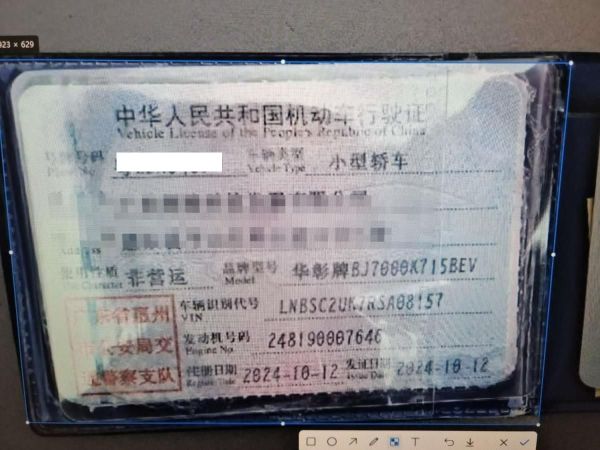 923 × 629
中华人民共和国机动车行驶证
Vehicle License of the People's Republic of China
号码 车辆类型 小型轿车
Plate No. Vehicle Type
Address
使用性质 非营运 品牌型号 华彰牌BJ7000K715BEV
Use Character Model
车辆识别代号 LNBSC2UK7RSA08157
VIN
发动机号码 248190007646
Engine No.
注册日期 2024-10-12 发证日期 2024-10-12
Register Date Issue Date
广东省惠州
市公安局交
通警察支队
T